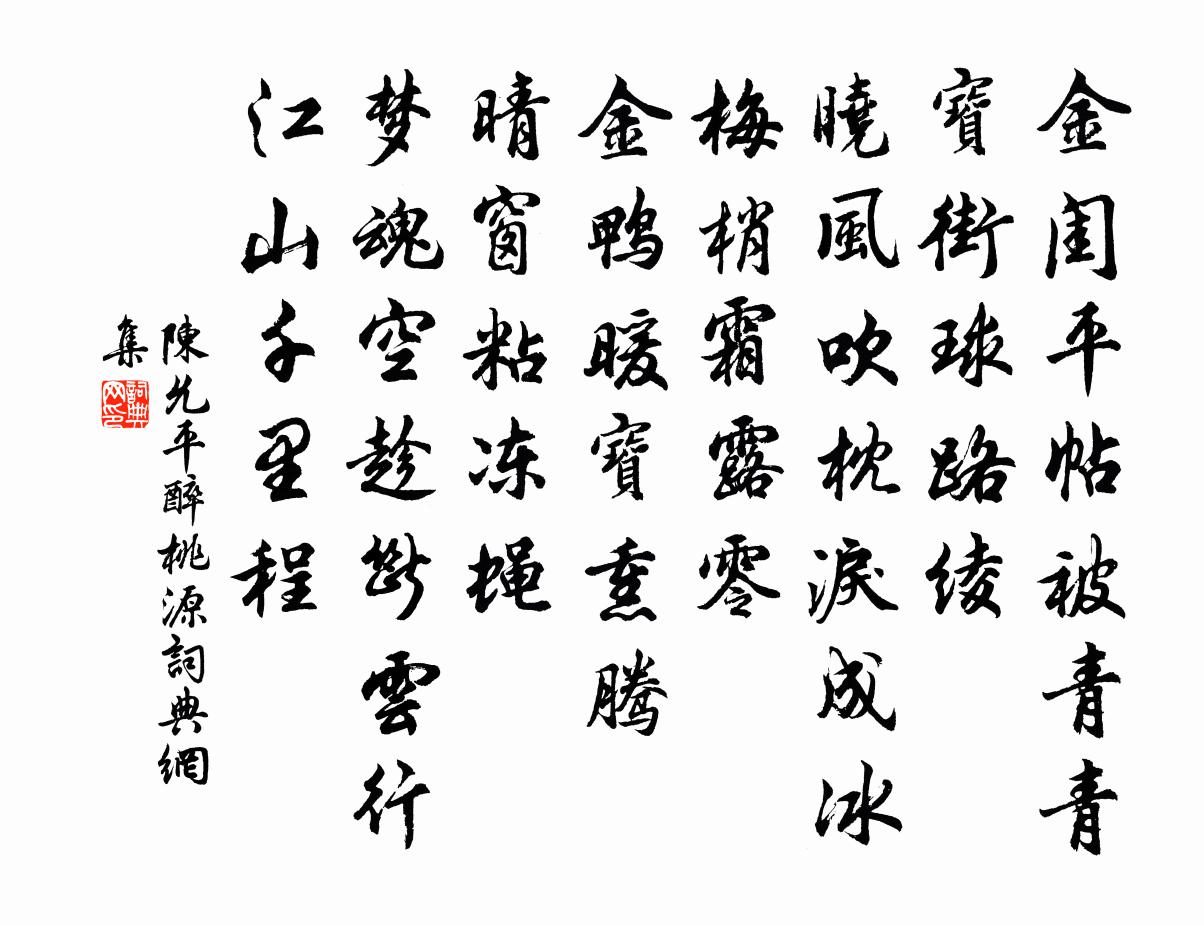 金闺平帖被青青
寶街球路绫
曉風吹枕淚成冰
梅梢霜露零
金鸭暖寶熏腾
晴窗粘冻蝇
梦魂空趁斷雲行
江山千里程
陳允平醉桃源詞典網
集
詞典网印